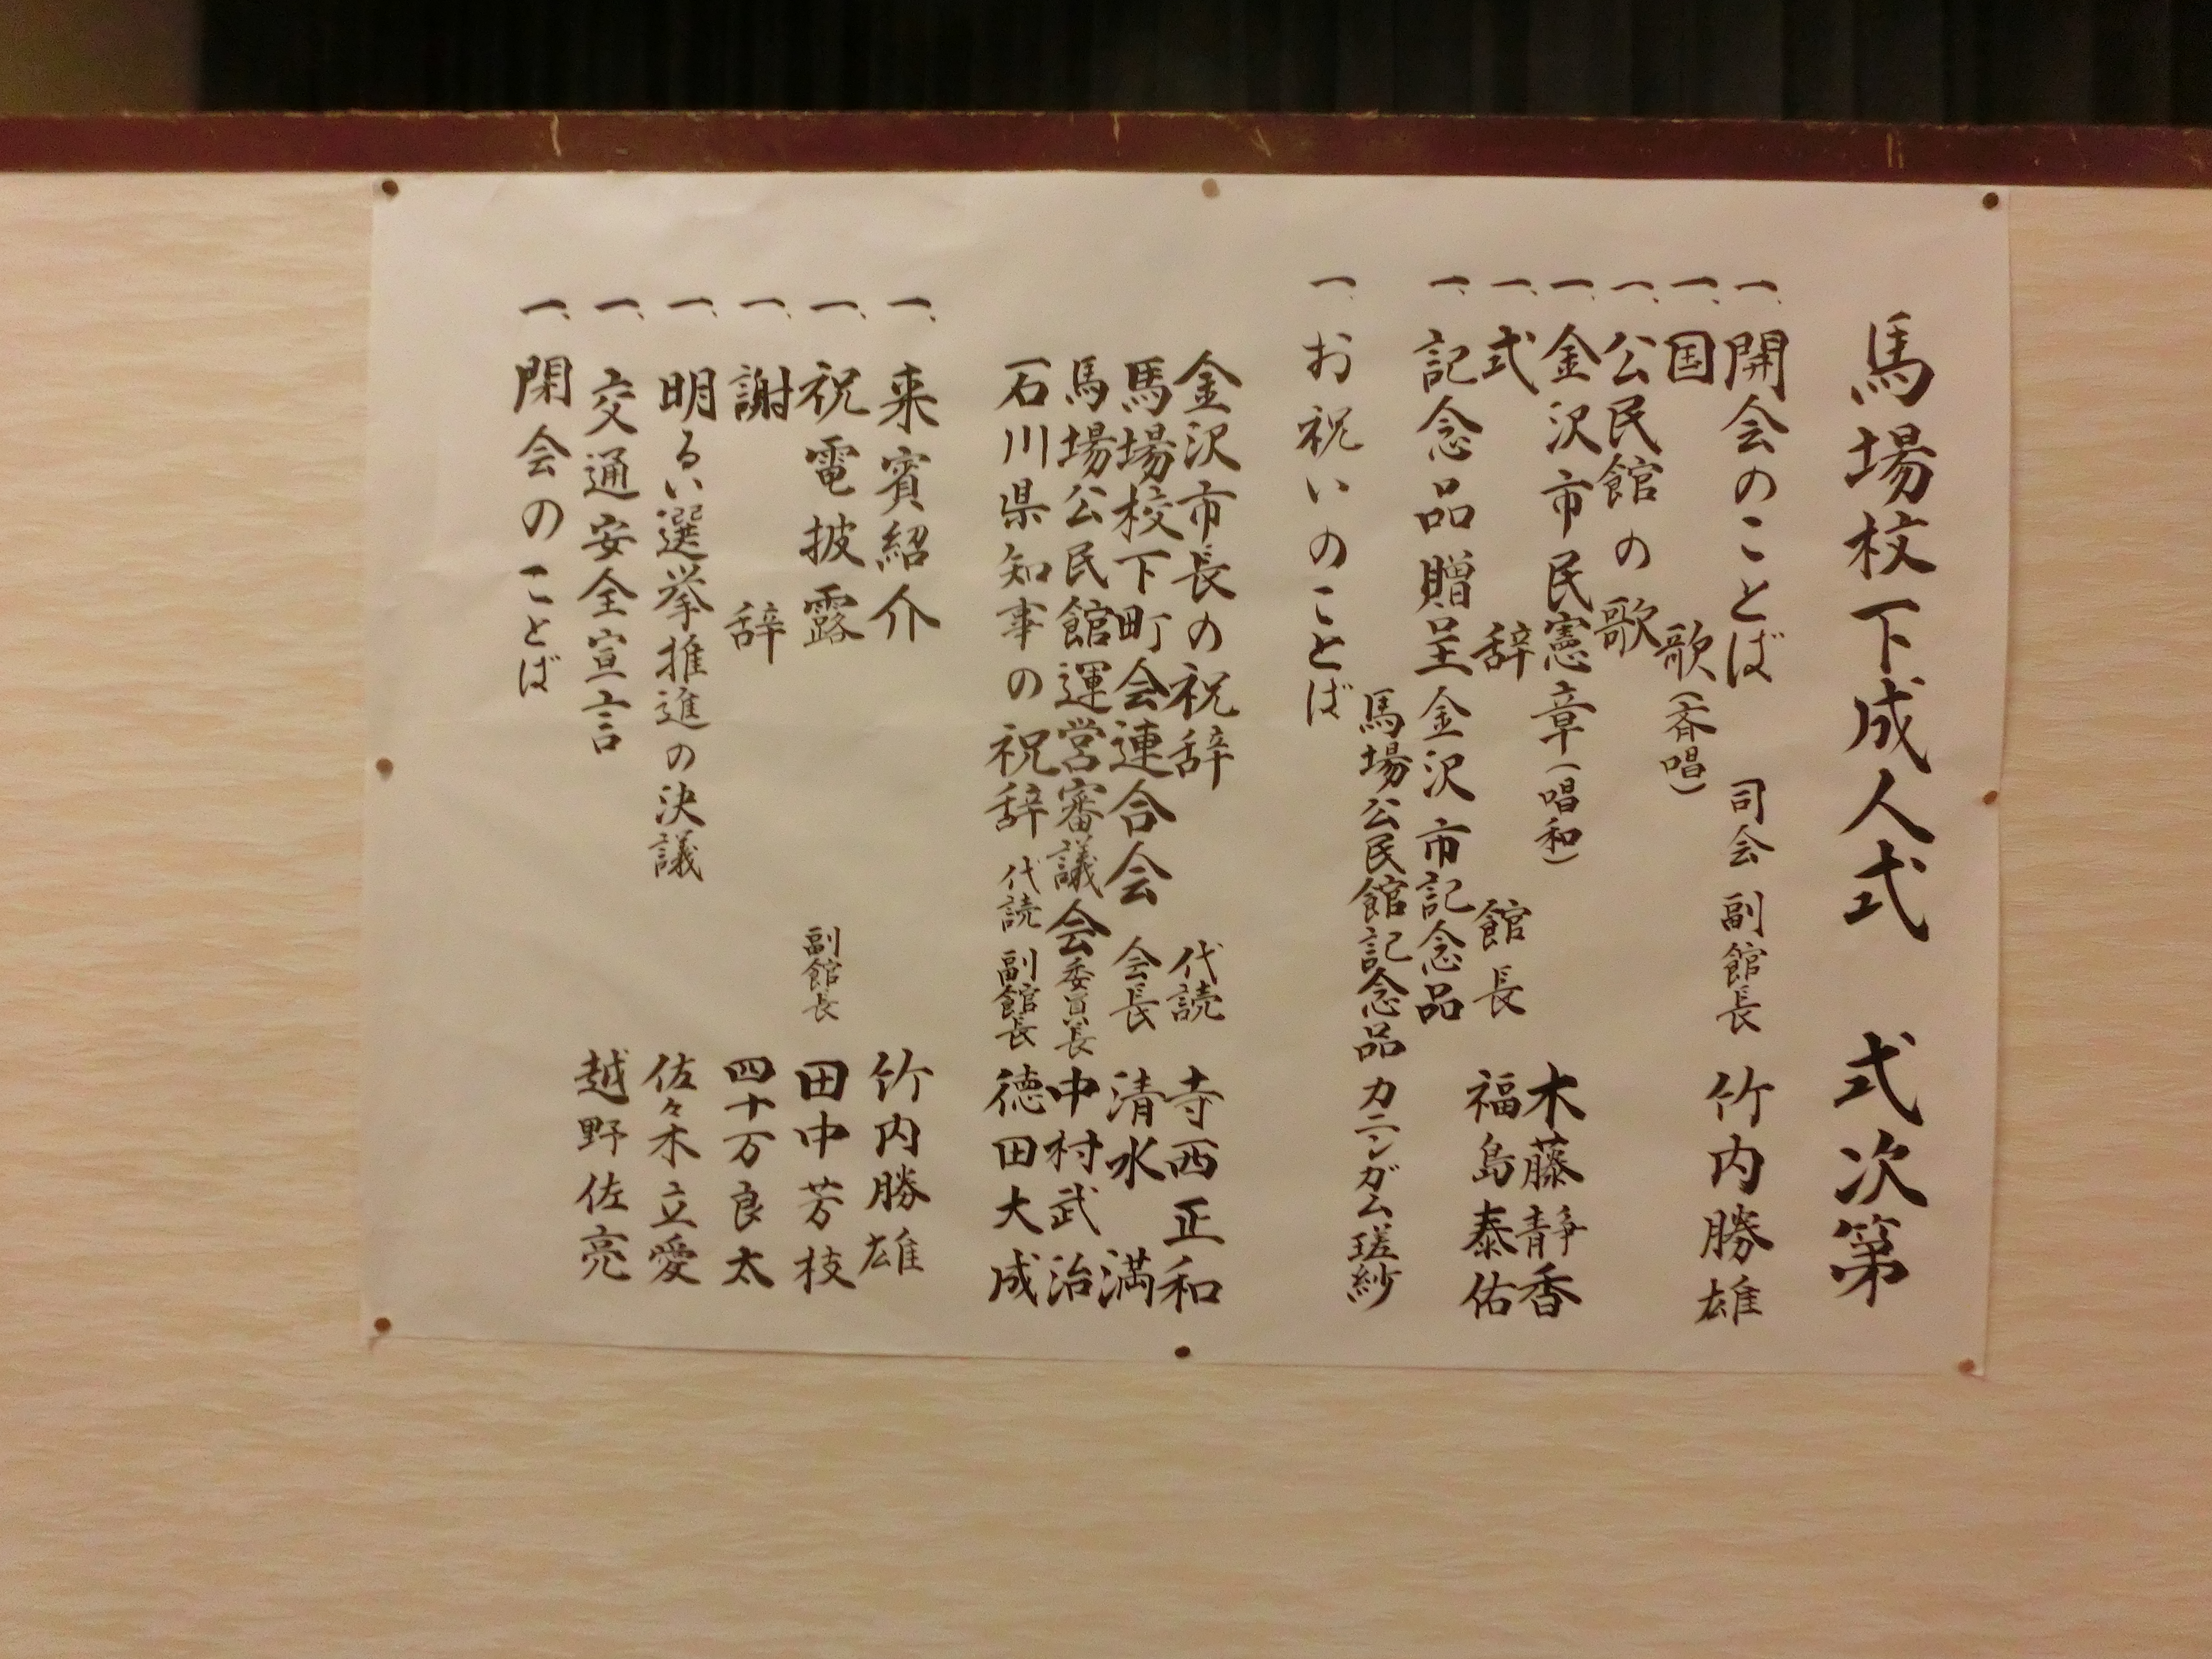 馬場校下成人式 式次第
一、開会のことば 司会 副館長 竹内勝雄
一、国歌(斉唱)
一、公民館の歌
一、金沢市民憲章(唱和) 木藤静香
一、式辞 館長 福島泰佑
一、記念品贈呈 金沢市記念品
馬場公民館記念品 カニンガム瑳紗
一、お祝いのことば
金沢市長の祝辞 代読 寺西正和
馬場校下町会連合会 会長 清水満
馬場公民館運営審議会委員長 中村武治
石川県知事の祝辞 代読 副館長 徳田大成
一、来賓紹介 竹内勝雄
一、祝電披露 副館長 田中芳枝
一、謝辞 四十万良太
一、明るい選挙推進の決議 佐々木立愛
一、交通安全宣言 越野佐亮
一、閉会のことば